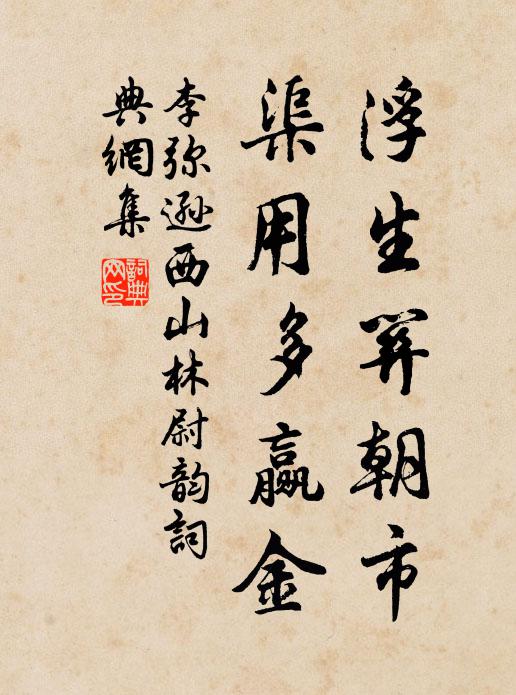 浮生朝市
渠用多贏金
李弥遜西山林尉韵詞
典網集
詞典
网印